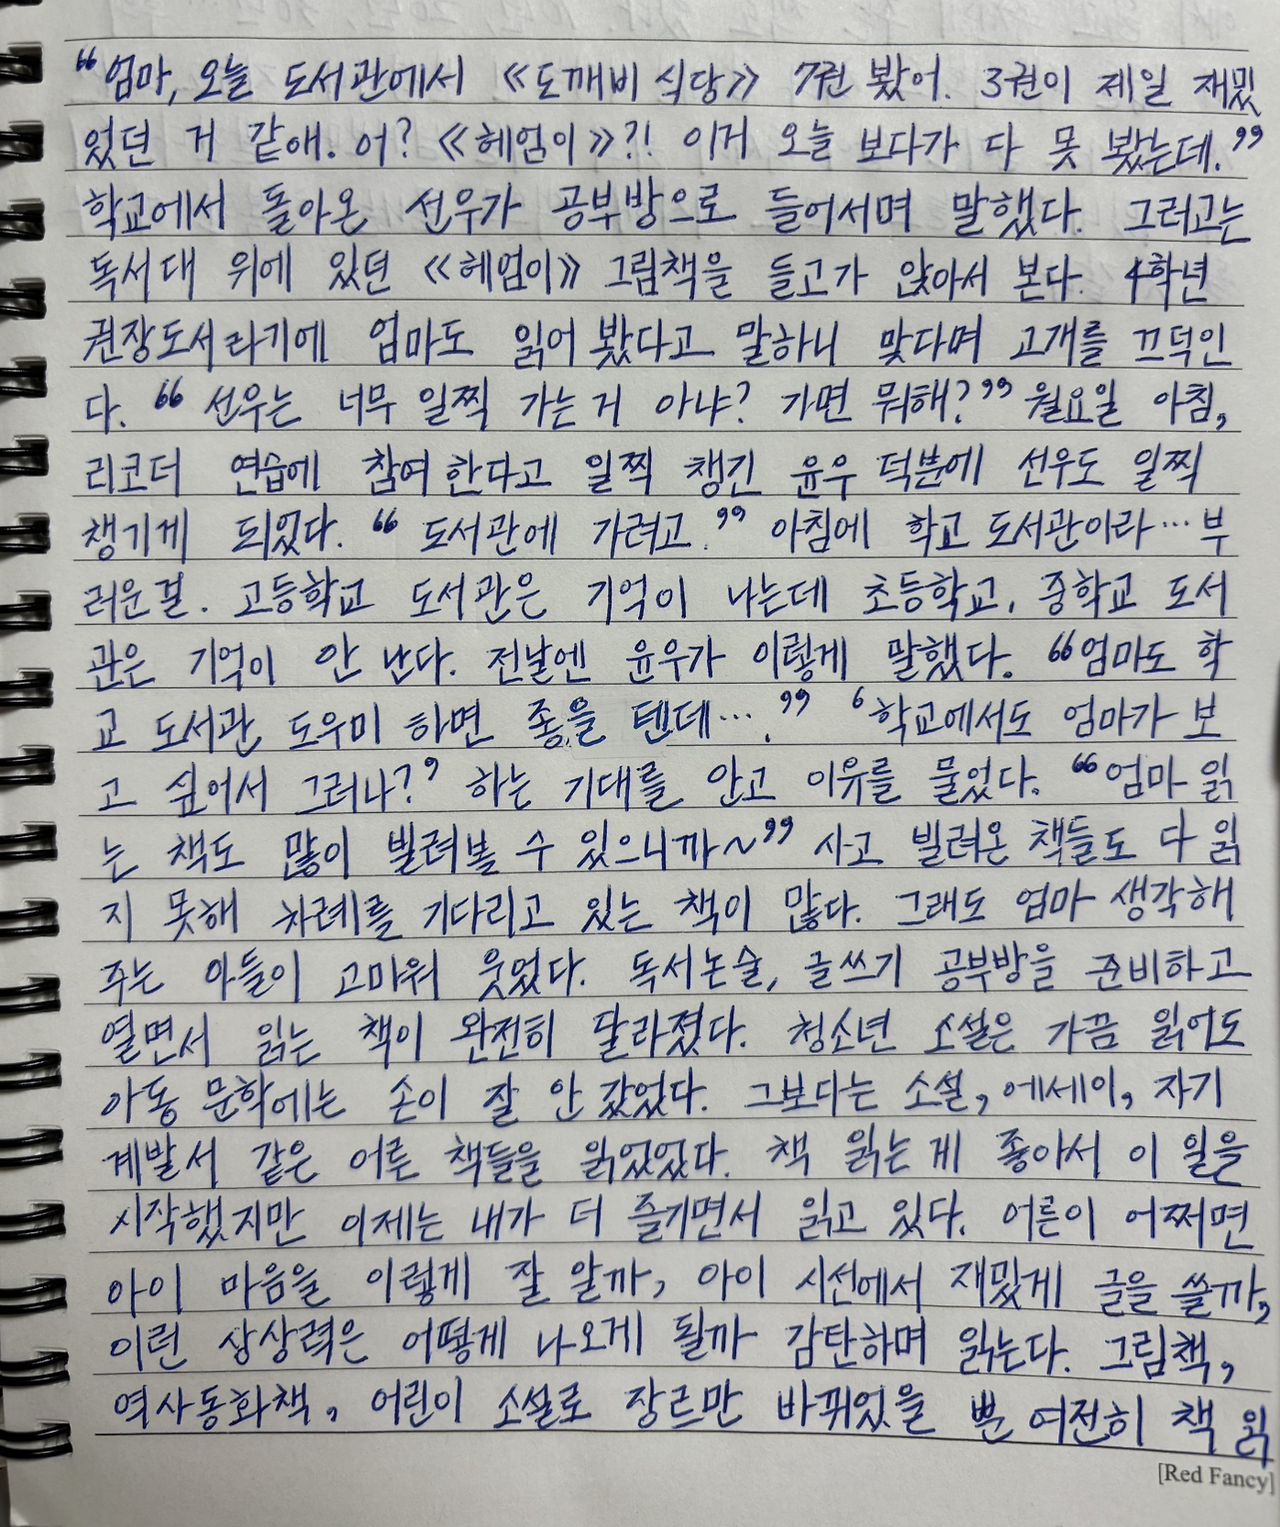 “엄마, 오늘 도서관에서 《도깨비 식당》 7권 봤어. 3권이 제일 재밌
었던 거 같애. 어? 《헤엄이》?! 이거 오늘 보다가 다 못 봤는데.”
학교에서 돌아온 선우가 공부방으로 들어서며 말했다. 그러고는
독서대 위에 있던 《헤엄이》 그림책을 들고가 앉아서 본다. 4학년
권장도서라기에 엄마도 읽어 봤다고 말하니 맞다며 고개를 끄덕인
다. “선우는 너무 일찍 가는거 아냐? 가면 뭐해?” 월요일 아침,
리코더 연습에 참여한다고 일찍 챙긴 윤우 덕분에 선우도 일찍
챙기게 되었다. “도서관에 가려고.” 아침에 학교 도서관이라… 부
러운걸. 고등학교 도서관은 기억이 나는데 초등학교, 중학교 도서
관은 기억이 안 난다. 전날엔 윤우가 이렇게 말했다. “엄마도 학
교 도서관 도우미 하면 좋을 텐데….” ‘학교에서도 엄마가 보
고 싶어서 그러나?’ 하는 기대를 안고 이유를 물었다. “엄마 읽
는 책도 많이 빌려볼 수 있으니까~” 사고 빌려온 책들도 다 읽
지 못해 차례를 기다리고 있는 책이 많다. 그래도 엄마 생각해
주는 아들이 고마워 웃었다. 독서논술, 글쓰기 공부방을 준비하고
열면서 읽는 책이 완전히 달라졌다. 청소년 소설은 가끔 읽어도
아동 문학에는 손이 잘 안 갔었다. 그보다는 소설, 에세이, 자기
계발서 같은 어른 책들을 읽었었다. 책 읽는 게 좋아서 이 일을
시작했지만 이제는 내가 더 즐기면서 읽고 있다. 어른이 어쩌면
아이 마음을 이렇게 잘 알까, 아이 시선에서 재밌게 글을 쓸까,
이런 상상력은 어떻게 나오게 될까 감탄하며 읽는다. 그림책,
역사동화책, 어린이 소설로 장르만 바뀌었을 뿐 여전히 책 읽
[Red Fancy]